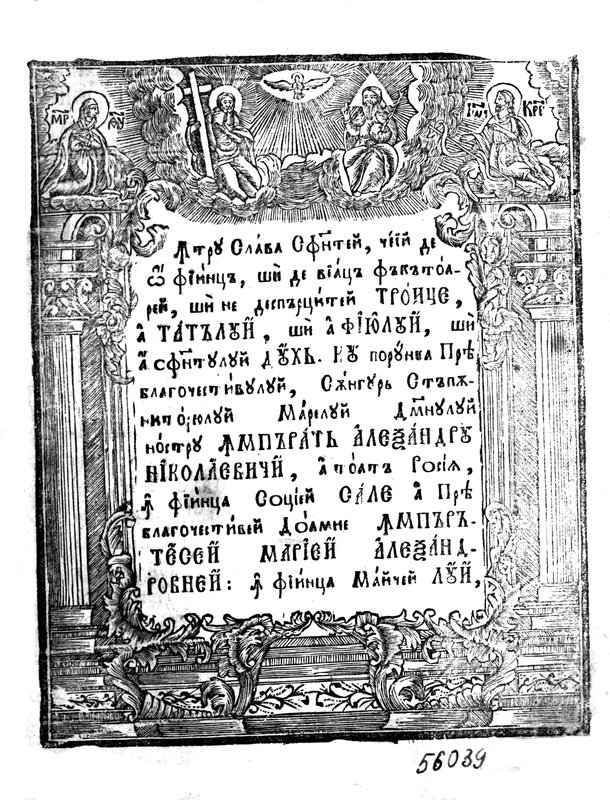 МР҃ ѲУ҃
І҆ѡа҃н КРС҃
Ꙟтру Сла́ва Сфи҃нтей, чеі́й де
ѿ фїи́нцъ, ши де вїа́цъ фъкъто́а-
рей, ши́ не деспърци́тей ТРО́ИЧЕ,
а҆ ТА́ТЪЛУЙ, ши а҆ ФЇЮ́ЛУЙ, ши
а҆ сфи҃нтулуй ДУ́ХЬ. КУ пору́нка Прѣ
благочести́вулуй, Си́нгурь Стъпѫ-
нито́рюлуй Ма́релуй Дм҃нулуй
но́стру ꙞМПЪРА́ТЬ А҆ЛЕѮА́НДРУ
НІКОЛА́ЕВИЧИ, а҆ то́атъ Росі́ѧ,
ꙟ҆ фїи́нца Соці́ей СА́ЛЕ а҆ Прѣ
благочести́вей До́амне ꙞМПЪРЪ-
ТЕ́СЕЙ МАРІ́ЕЙ А҆ЛЕѮА́НД-
РОВНЕЙ: ꙟ҆ фїи́нца Ма́йчей ЛУ́Й,
56039